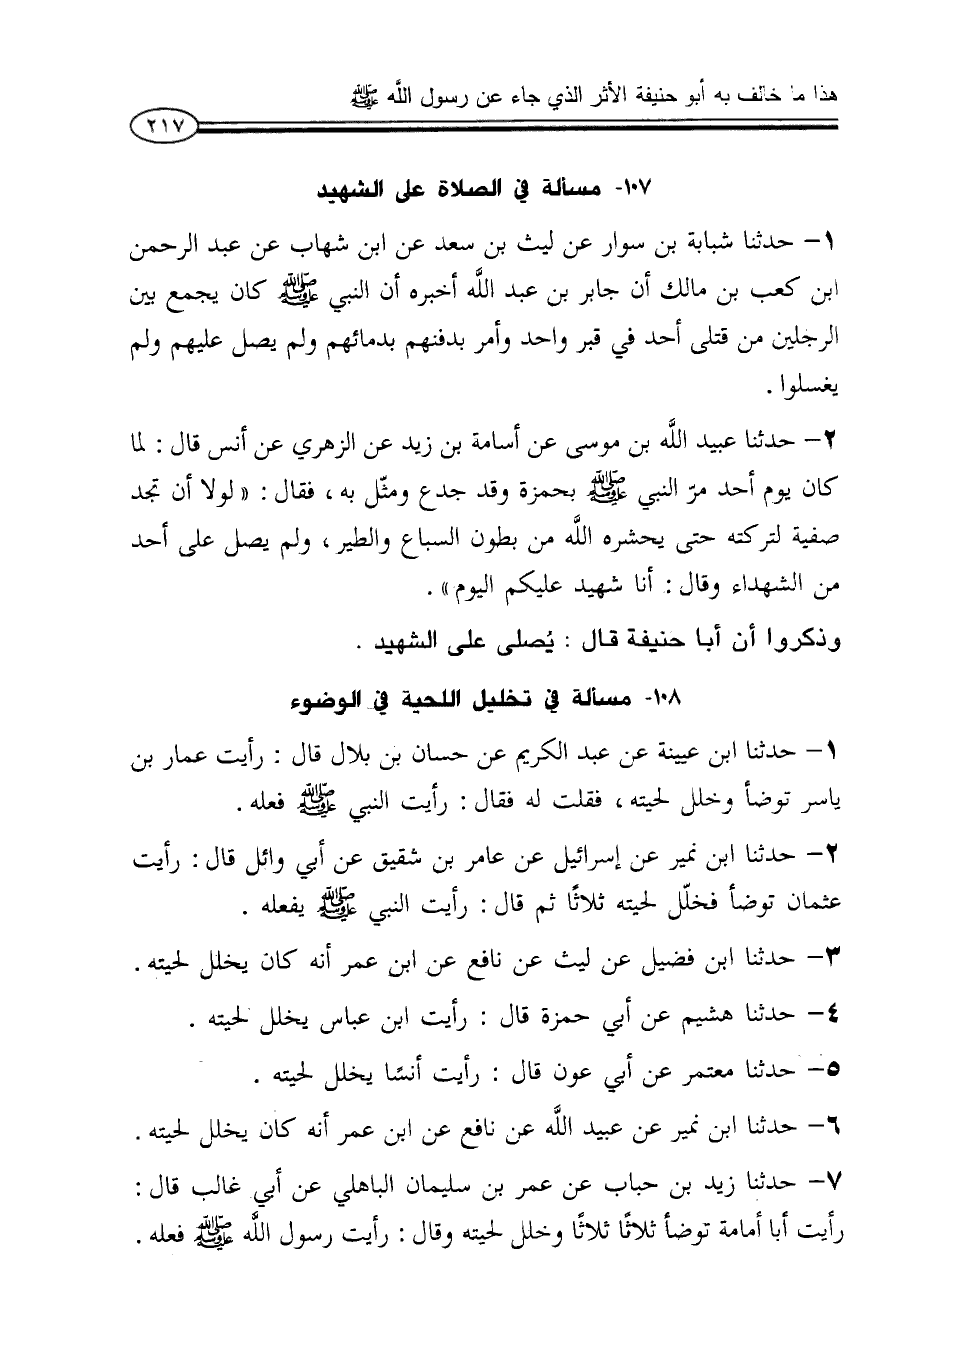 هذا ما خالف به أبو حنيفة الأثر الذي جاء عن رسول الله ﷺ
٢١٧
١٠٧- مسألة في الصلاة على الشهيد
١- حدثنا شبابة بن سوار عن ليث بن سعد عن ابن شهاب عن عبد الرحمن
ابن كعب بن مالك أن جابر بن عبد الله أخبره أن النبي ﷺ كان يجمع بين
الرجلين من قتلى أحد في قبر واحد وأمر بدفنهم بدمائهم ولم يصل عليهم ولم
يغسلوا .
٢- حدثنا عبيد الله بن موسى عن أسامة بن زيد عن الزهري عن أنس قال : لما
كان يوم أحد مرّ النبي ﷺ بحمزة وقد جدع ومثّل به ، فقال : « لولا أن تجد
صفية لتركته حتى يحشره الله من بطون السباع والطير ، ولم يصل على أحد
من الشهداء وقال : أنا شهيد عليكم اليوم » .
وذكروا أن أبا حنيفة قال : يُصلى على الشهيد .
١٠٨- مسألة في تخليل اللحية في الوضوء
١- حدثنا ابن عيينة عن عبد الكريم عن حسان بن بلال قال : رأيت عمار بن
ياسر توضأ وخلل لحيته ، فقلت له فقال : رأيت النبي ﷺ فعله .
٢- حدثنا ابن نمير عن إسرائيل عن عامر بن شقيق عن أبي وائل قال : رأيت
عثمان توضأ فخلّل لحيته ثلاثًا ثم قال : رأيت النبي ﷺ يفعله .
٣- حدثنا ابن فضيل عن ليث عن نافع عن ابن عمر أنه كان يخلل لحيته .
٤- حدثنا هشيم عن أبي حمزة قال : رأيت ابن عباس يخلل لحيته .
٥- حدثنا معتمر عن أبي عون قال : رأيت أنسًا يخلل لحيته .
٦- حدثنا ابن نمير عن عبيد الله عن نافع عن ابن عمر أنه كان يخلل لحيته .
٧- حدثنا زيد بن حباب عن عمر بن سليمان الباهلي عن أبي غالب قال :
رأيت أبا أمامة توضأ ثلاثًا ثلاثًا وخلل لحيته وقال : رأيت رسول الله ﷺ فعله .